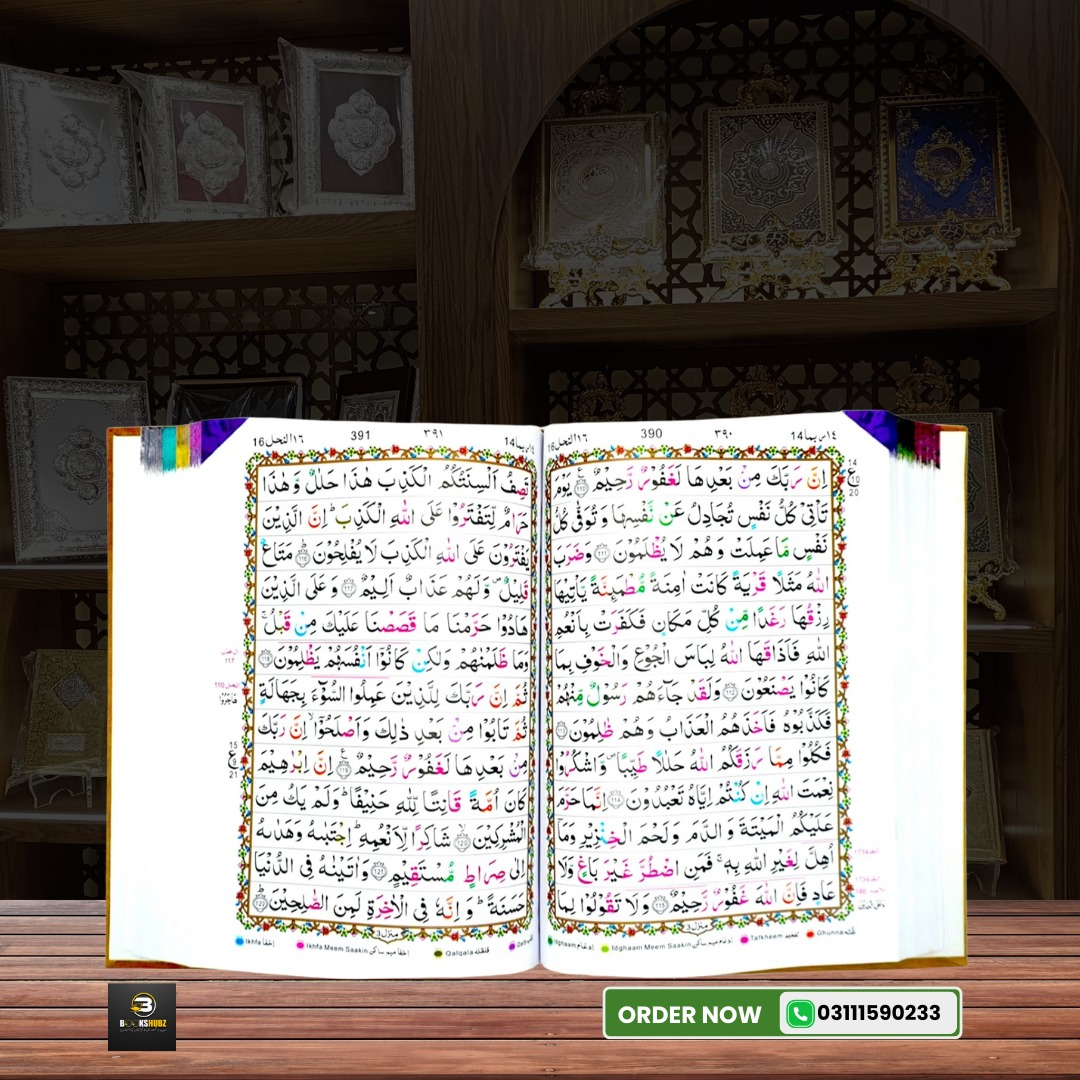 ١٤ ربما 14
٣٩٠
390
١٦ النحل 16
اِنَّ رَبَّكَ مِنْۢ بَعْدِهَا لَغَفُوْرٌ رَّحِيْمٌ ۝۱۱۰ يَوْمَ
تَاْتِيْ كُلُّ نَفْسٍ تُجَادِلُ عَنْ نَّفْسِهَا وَ تُوَفّٰى كُلُّ
نَفْسٍ مَّا عَمِلَتْ وَ هُمْ لَا يُظْلَمُوْنَ ۝۱۱۱ وَضَرَبَ
اللّٰهُ مَثَلًا قَرْيَةً كَانَتْ اٰمِنَةً مُّطْمَىِٕنَّةً يَّاْتِيْهَا
رِزْقُهَا رَغَدًا مِّنْ كُلِّ مَكَانٍ فَكَفَرَتْ بِاَنْعُمِ
اللّٰهِ فَاَذَاقَهَا اللّٰهُ لِبَاسَ الْجُوْعِ وَالْخَوْفِ بِمَا
كَانُوْا يَصْنَعُوْنَ ۝۱۱۲ وَلَقَدْ جَآءَهُمْ رَسُوْلٌ مِّنْهُمْ
فَكَذَّبُوْهُ فَاَخَذَهُمُ الْعَذَابُ وَهُمْ ظٰلِمُوْنَ ۝۱۱۳
فَكُلُوْا مِمَّا رَزَقَكُمُ اللّٰهُ حَلٰلًا طَيِّبًا ۪ وَّاشْكُرُوْا
نِعْمَتَ اللّٰهِ اِنْ كُنْتُمْ اِيَّاهُ تَعْبُدُوْنَ ۝۱۱۴ اِنَّمَا حَرَّمَ
عَلَيْكُمُ الْمَيْتَةَ وَ الدَّمَ وَ لَحْمَ الْخِنْزِيْرِ وَمَاۤ
اُهِلَّ لِغَيْرِ اللّٰهِ بِهٖ ۚ فَمَنِ اضْطُرَّ غَيْرَ بَاغٍ وَّلَا
عَادٍ فَاِنَّ اللّٰهَ غَفُوْرٌ رَّحِيْمٌ ۝۱۱۵ وَلَا تَقُوْلُوْا لِمَا
منزل ٣
14
ع
20
Idghaam ادغام Idghaam Meem Saakin ادغام میم ساکن Tafkheem تفخیم Ghunna غنّہ
١٤ ربما 14
٣٩١
391
١٦ النحل 16
تَصِفُ اَلْسِنَتُكُمُ الْكَذِبَ هٰذَا حَلٰلٌ وَّ هٰذَا
حَرَامٌ لِّتَفْتَرُوْا عَلَى اللّٰهِ الْكَذِبَ ؕ اِنَّ الَّذِيْنَ
يَفْتَرُوْنَ عَلَى اللّٰهِ الْكَذِبَ لَا يُفْلِحُوْنَ ۝۱۱۶ مَتَاعٌ
قَلِيْلٌ ۪ وَّ لَهُمْ عَذَابٌ اَلِيْمٌ ۝۱۱۷ وَ عَلَى الَّذِيْنَ
هَادُوْا حَرَّمْنَا مَا قَصَصْنَا عَلَيْكَ مِنْ قَبْلُ ۚ
وَمَا ظَلَمْنٰهُمْ وَلٰكِنْ كَانُوْۤا اَنْفُسَهُمْ يَظْلِمُوْنَ ۝۱۱۸
ثُمَّ اِنَّ رَبَّكَ لِلَّذِيْنَ عَمِلُوا السُّوْٓءَ بِجَهَالَةٍ
ثُمَّ تَابُوْا مِنْۢ بَعْدِ ذٰلِكَ وَاَصْلَحُوْۤا ۙ اِنَّ رَبَّكَ
مِنْۢ بَعْدِهَا لَغَفُوْرٌ رَّحِيْمٌ ۝۱۱۹ اِنَّ اِبْرٰهِيْمَ
كَانَ اُمَّةً قَانِتًا لِّلّٰهِ حَنِيْفًا ؕ وَلَمْ يَكُ مِنَ
الْمُشْرِكِيْنَ ۝۱۲۰ شَاكِرًا لِّاَنْعُمِهٖ ؕ اِجْتَبٰىهُ وَهَدٰىهُ
اِلٰى صِرَاطٍ مُّسْتَقِيْمٍ ۝۱۲۱ وَاٰتَيْنٰهُ فِى الدُّنْيَا
حَسَنَةً ؕ وَ اِنَّهٗ فِى الْاٰخِرَةِ لَمِنَ الصّٰلِحِيْنَ ۝۱۲۲
منزل ٣
117
110
15
ع
21
Ikhfa اخفا Ikhfa Meem Saakin اخفا میم ساکن Qalqala قلقلہ
BOOKSHUBZ
ORDER NOW 03111590233